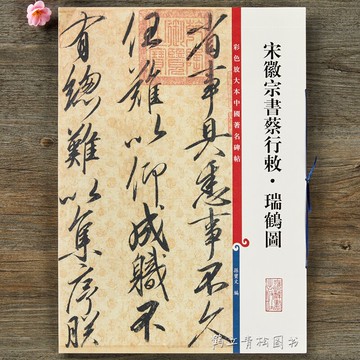 宋徽宗書蔡行敕·瑞鶴圖
彩色放大本中國著名碑帖
孫寶文 編
省事具悉事不久
任難以仰成職不
有總難以集序朕
图书